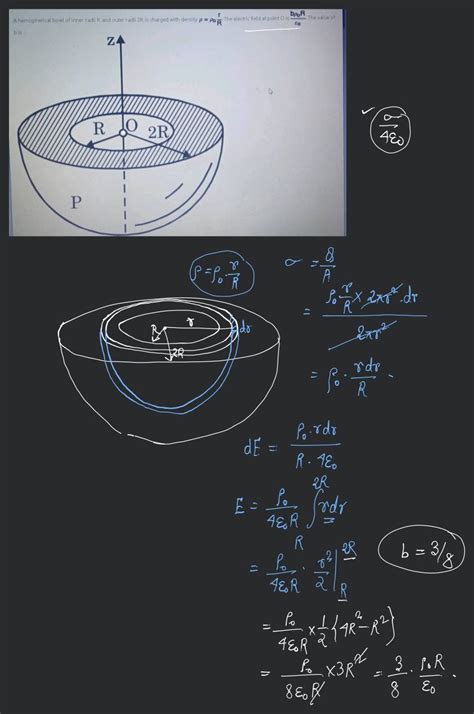 A hemispherical bowl of inner radii R and outer radii 2R is charged with density ρ = ρ₀ r/R. The electric field at point O is bρ₀R/ε₀. The value of
b is
z
R O 2R
P
✓ σ/4ε₀
ρ = ρ₀ · r/R
σ = q/A
= ρ₀ r/R × 2πr² · dr / 2πr²
= ρ₀ · rdr/R ·
r
R
dr
2R
dE = ρ₀ · rdr / R · 4ε₀
E = ρ₀/4ε₀R ∫ rdr
2R
R
= ρ₀/4ε₀R · r²/2 |
2R
R
b = 3/8
= ρ₀/4ε₀R × 1/2 {4R² - R²}
= ρ₀/8ε₀R × 3R² = 3/8 · ρ₀R/ε₀ ·